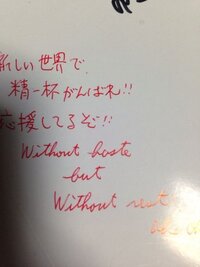 新しい世界で
精一杯がんばれ!!
応援してるぞ!!
Without haste
but
Without rest